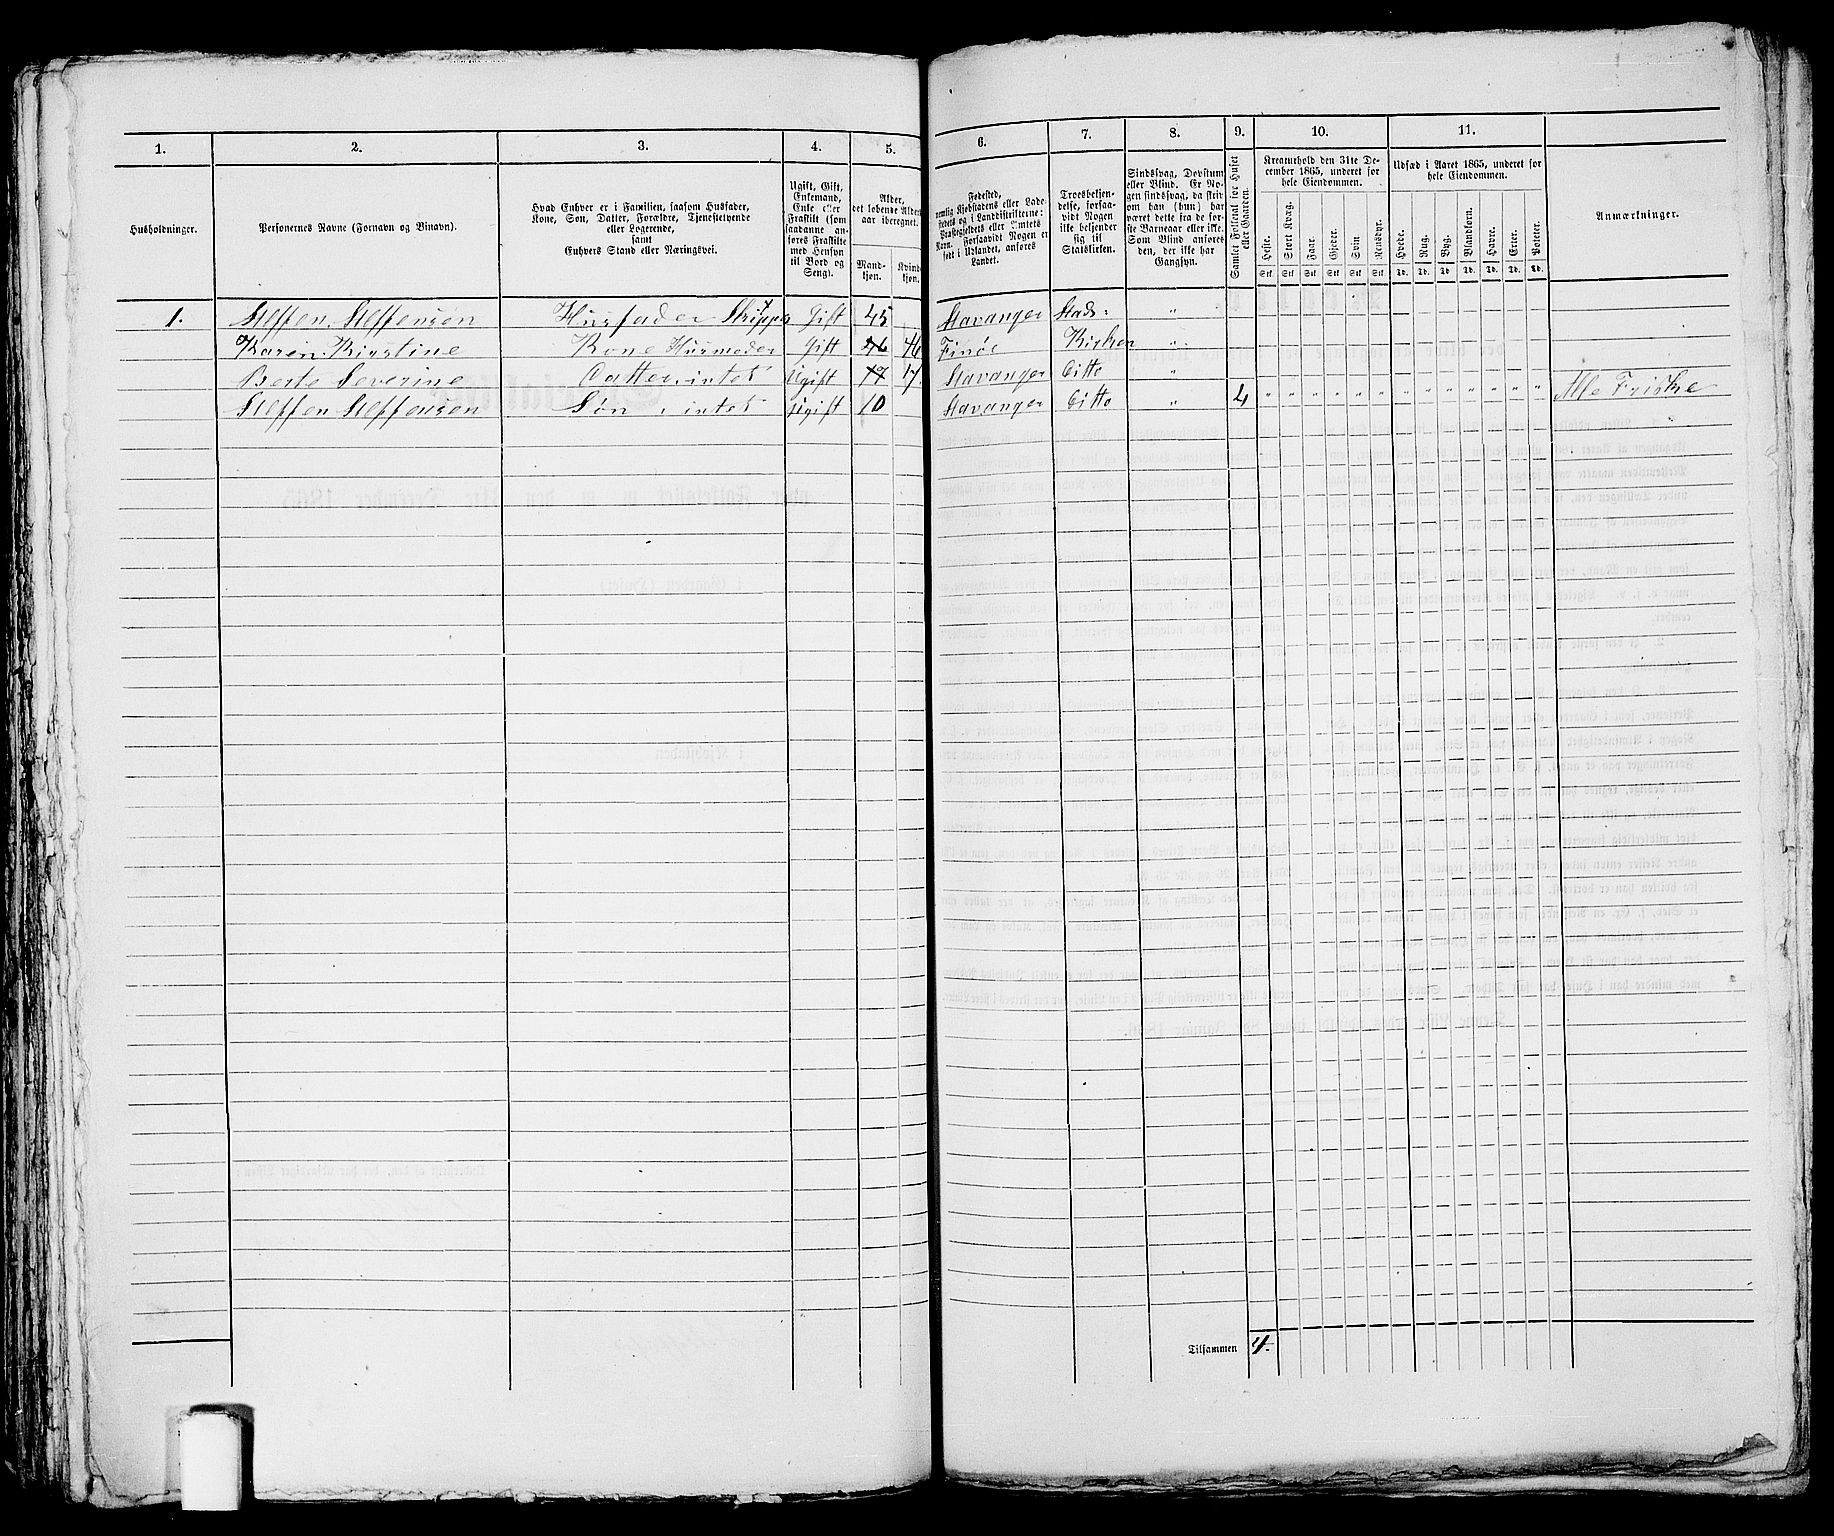 1. 2. 3. 4. 5. 6. 7. 8. 9. 10. 11.
Husholdninger.
Personernes Navne (Fornavn og Binavn).
Hvad Enhver er i Familien, saasom Husfader,
Kone, Søn, Datter, Forældre, Tjenestetyende
eller Logerende,
samt
Enhvers Stand eller Næringsvei.
Ugift, Gift,
Enkemand,
Enke eller
Fraskilt (som
saadanne an-
føres Fraskilte
med Hensyn
til Bord og
Seng).
Alder,
det løbende Alders-
aar iberegnet.
Mand-
kjøn.
Kvinde-
kjøn.
Fødested,
nemlig Kjøbstadens eller Lade-
stedets og i Landdistrikterne:
Præstegjeldets eller Amtets
Navn. Forsaavidt Nogen er
født i Udlandet, anføres
Landet.
Troesbekjen-
delse, forsaa-
vidt Nogen
ikke bekjender
sig til
Statskirken.
Sindssvag, Døvstum
eller Blind. Er No-
gen sindssvag, da skriv
om han (hun) har
været dette fra de før-
ste Barneaar eller ikke.
Som Blind anføres
den, der ikke har
Gangsyn.
Samlet Folketal for Huset
eller Gaarden.
Kreaturhold den 31te De-
cember 1865, underet for
hele Eiendommen.
Heste. Stort Kvæg. Faar. Gjeder. Svin Rensdyr.
Stk Stk Stk Stk Stk Stk
Udsæd i Aaret 1865, underet for
hele Eiendommen.
Hvede. Rug. Byg. Blandkorn. Havre. Erter. Poteter.
Td. Td. Td. Td. Td. Td. Td.
Anmærkninger.
1. Steffen Steffensen Husfader Skipper Gift 45 Stavanger Stads: "
Karen Kirstine Kone Husmoder Gift 46 46 Finöe Kirken "
Berte Severine Datter, intet Ugift 17 17 Stavanger Ditto "
Steffen Steffensen Søn, intet Ugift 10 Stavanger Ditto " 4 " " " " " " " " " " " " " Alle Friske
Tilsammen 4.